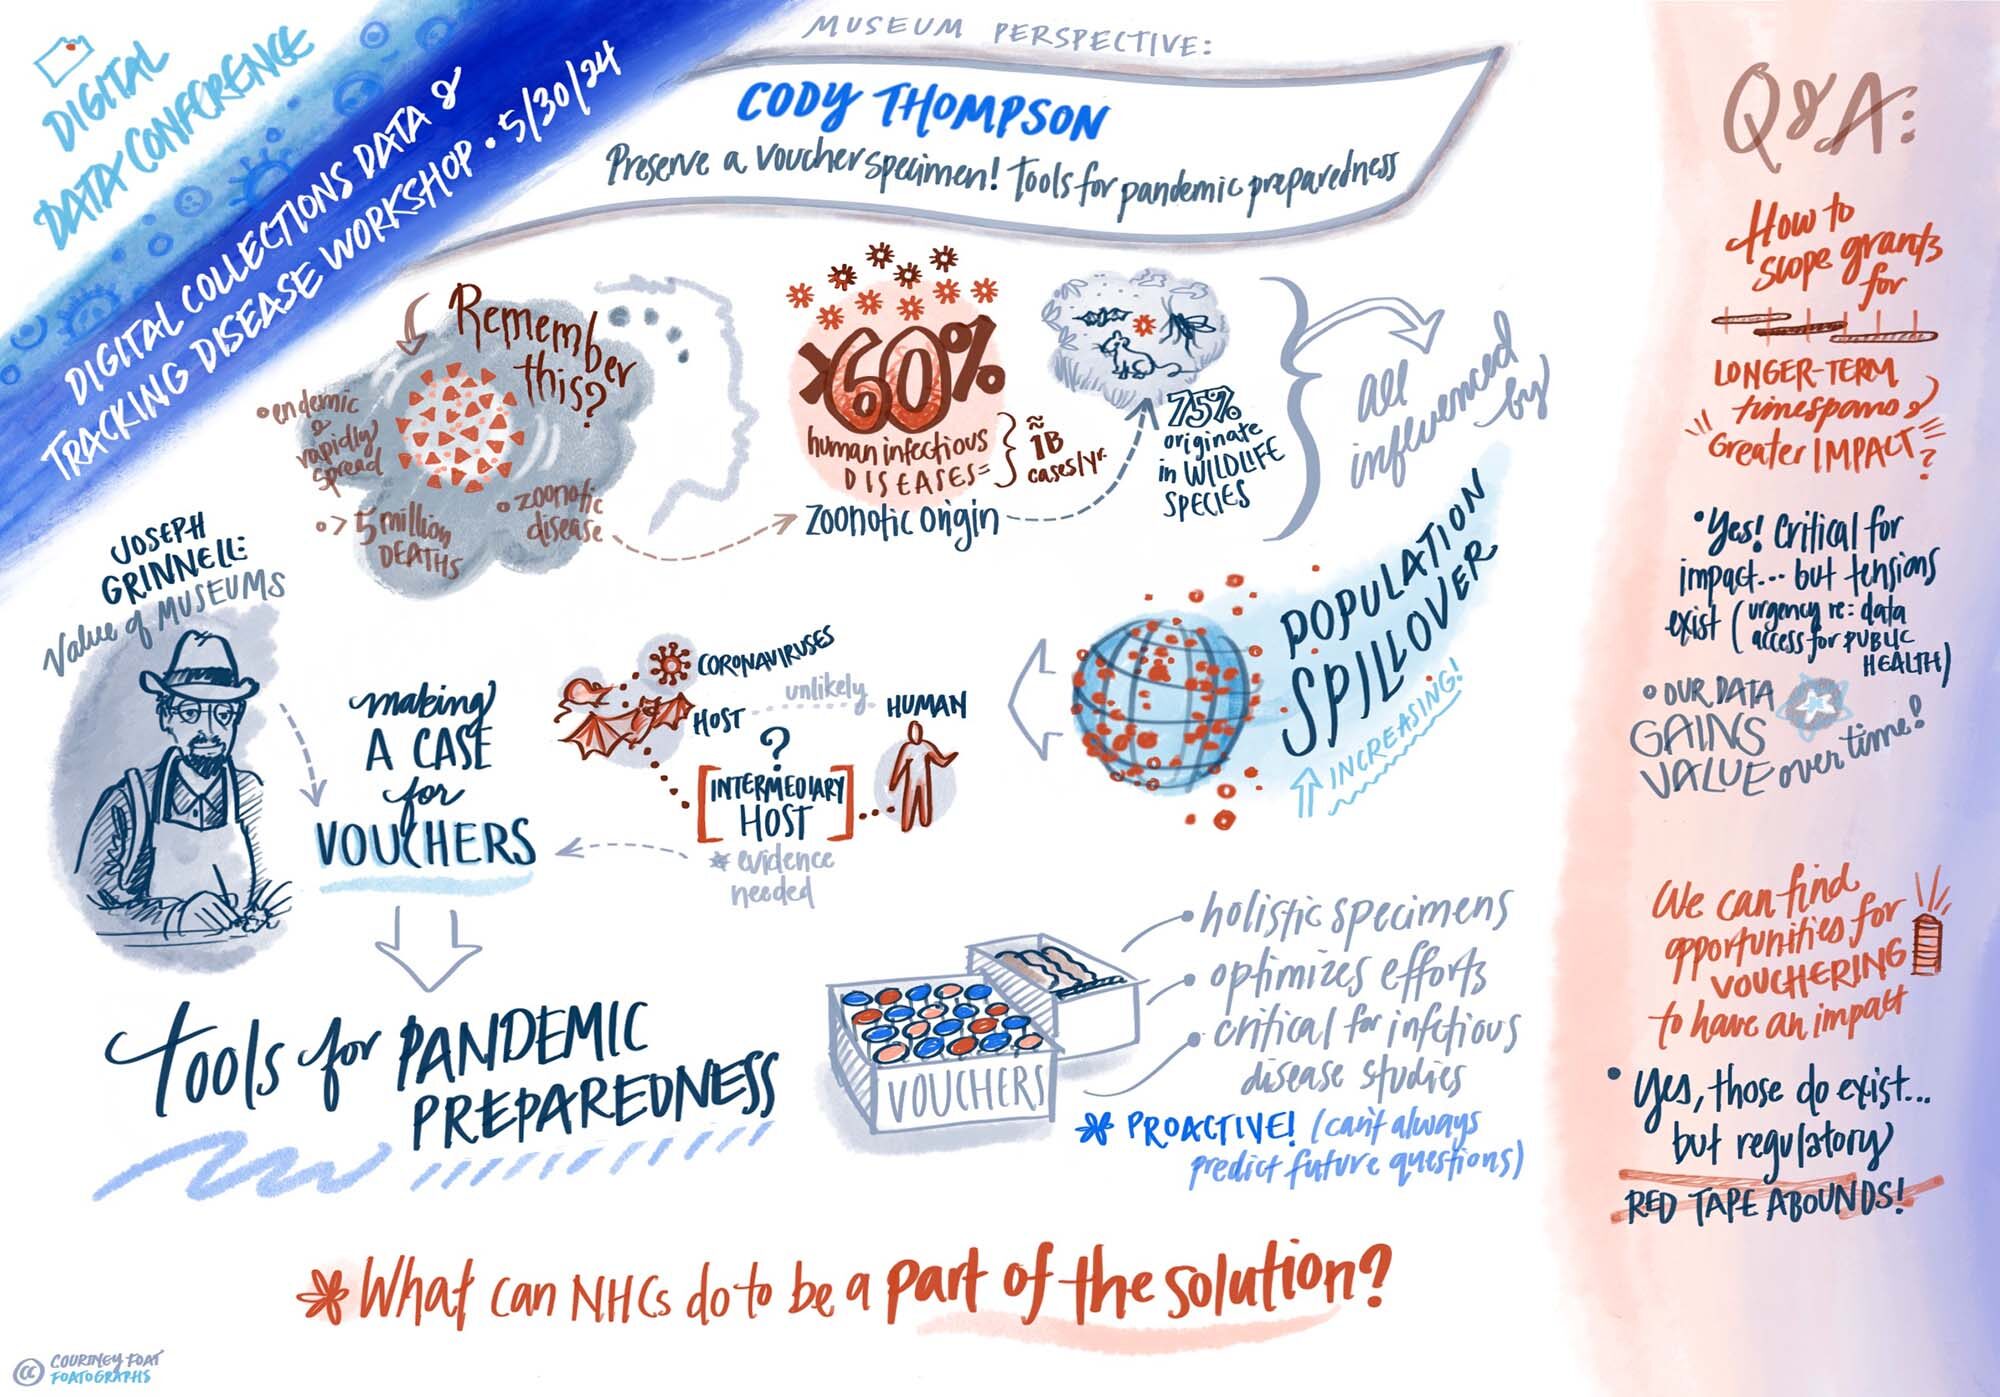 DIGITAL
DATA CONFERENCE
DIGITAL COLLECTIONS DATA &
TRACKING DISEASE WORKSHOP • 5/30/24
MUSEUM PERSPECTIVE:
CODY THOMPSON
Preserve a voucher specimen! Tools for pandemic preparedness
Remember
this?
• endemic
&
rapidly
spread
• >5 million
DEATHS
• zoonotic
disease
>60%
human infectious
DISEASES =
≈
1B
cases/yr.
zoonotic origin
75%
originate
in WILDLIFE
SPECIES
all
influenced
by
POPULATION
SPILLOVER
↑ INCREASING!
CORONAVIRUSES
HOST
unlikely
HUMAN
?
[INTERMEDIARY
HOST]
* evidence
needed
JOSEPH
GRINNELL:
Value of MUSEUMS
making
A CASE
for
VOUCHERS
Tools for PANDEMIC
PREPAREDNESS
VOUCHERS
• holistic specimens
• optimizes efforts
• critical for infctious
disease studies
* PROACTIVE! (can't always
predict future questions)
* What can NHCs do to be a part of the solution?
Q&A:
How to
slope grants
for
LONGER-TERM
timespans &
Greater IMPACT?
• Yes! Critical for
impact... but tensions
exist (urgency re: data
access for PUBLIC
HEALTH)
• OUR DATA
GAINS
VALUE over time!
We can find
opportunities for
VOUCHERING
to have an impact
• Yes, those do exist...
but regulatory
RED TAPE ABOUNDS!
cc COURTNEY FOAT
FOATOGRAPHS